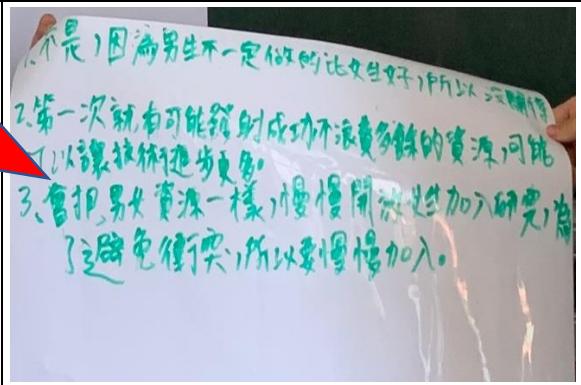 1.不是，因為男生不一定做的比女生好，所以沒關係
2.第一次就有可能發射成功不浪費多餘的資源，可能
可以讓技術進步更多。
3、會把男女資源一樣，慢慢開放女生加入研究，為
了避免衝突，所以要慢慢加入。